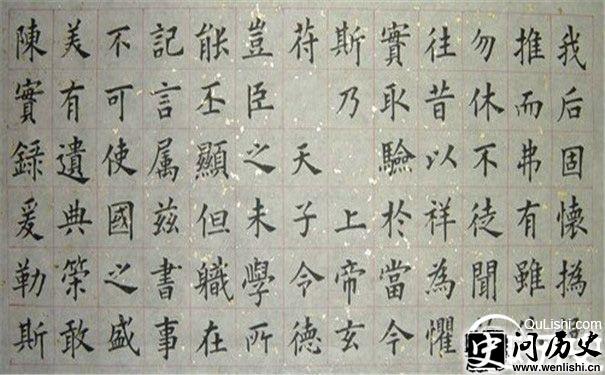 我后固懷撝
推而弗有雖
勿休不徒聞
往昔以祥為懼
實取驗於當今
斯乃 上帝玄
苻 天子令德
豈臣之未學所
能丕顯但軄在
記言属茲書事
不可使國之盛
美有遺典筞敢
陳實録爰勒斯
QuLishi.com
问历史
www.wenlishi.cn